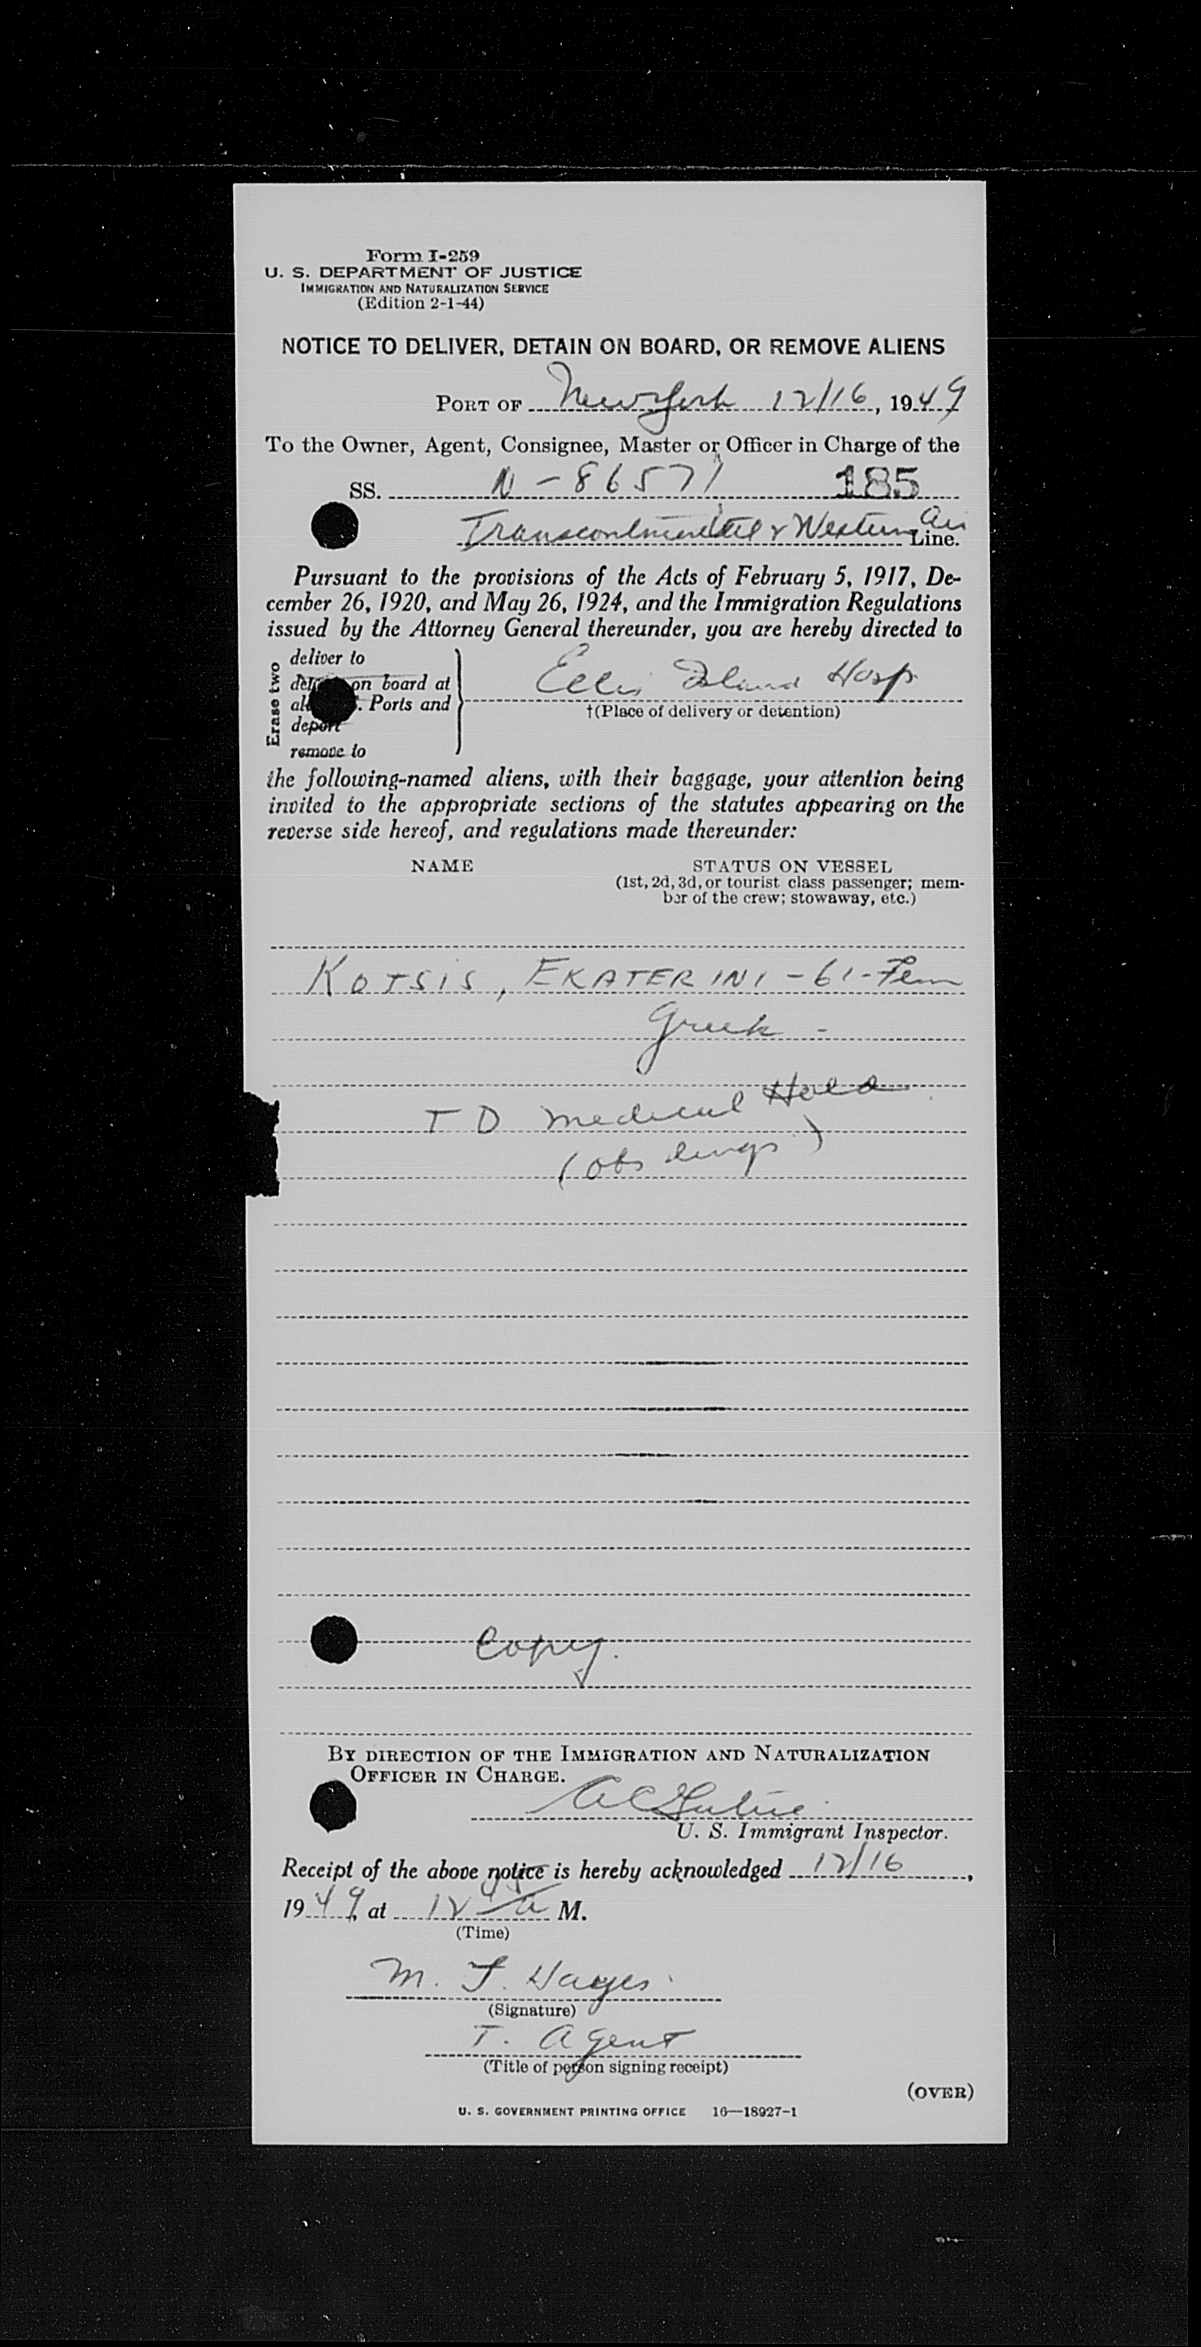 Form I-259
U. S. DEPARTMENT OF JUSTICE
IMMIGRATION AND NATURALIZATION SERVICE
(Edition 2-1-44)
NOTICE TO DELIVER, DETAIN ON BOARD, OR REMOVE ALIENS
PORT OF New York 12/16, 1949
To the Owner, Agent, Consignee, Master or Officer in Charge of the
SS. N-86571 185
Transcontinental & Western Air Line.
Pursuant to the provisions of the Acts of February 5, 1917, De-
cember 26, 1920, and May 26, 1924, and the Immigration Regulations
issued by the Attorney General thereunder, you are hereby directed to
Erase two
deliver to
on board at
Ports and
deport
remove to
Ellis Island Hosp
†(Place of delivery or detention)
the following-named aliens, with their baggage, your attention being
invited to the appropriate sections of the statutes appearing on the
reverse side hereof, and regulations made thereunder:
NAME STATUS ON VESSEL
(1st, 2d, 3d, or tourist class passenger; mem-
ber of the crew; stowaway, etc.)
KOTSIS, EKATERINI - 61 - Fem
Greek -
T D medical Hold
(obs lungs)
Copy.
BY DIRECTION OF THE IMMIGRATION AND NATURALIZATION
OFFICER IN CHARGE.
U. S. Immigrant Inspector.
Receipt of the above notice is hereby acknowledged 12/16,
1949, at 12 a M.
(Time)
M. F. Hayes
(Signature)
T. Agent
(Title of person signing receipt)
(OVER)
U. S. GOVERNMENT PRINTING OFFICE 16—18927-1